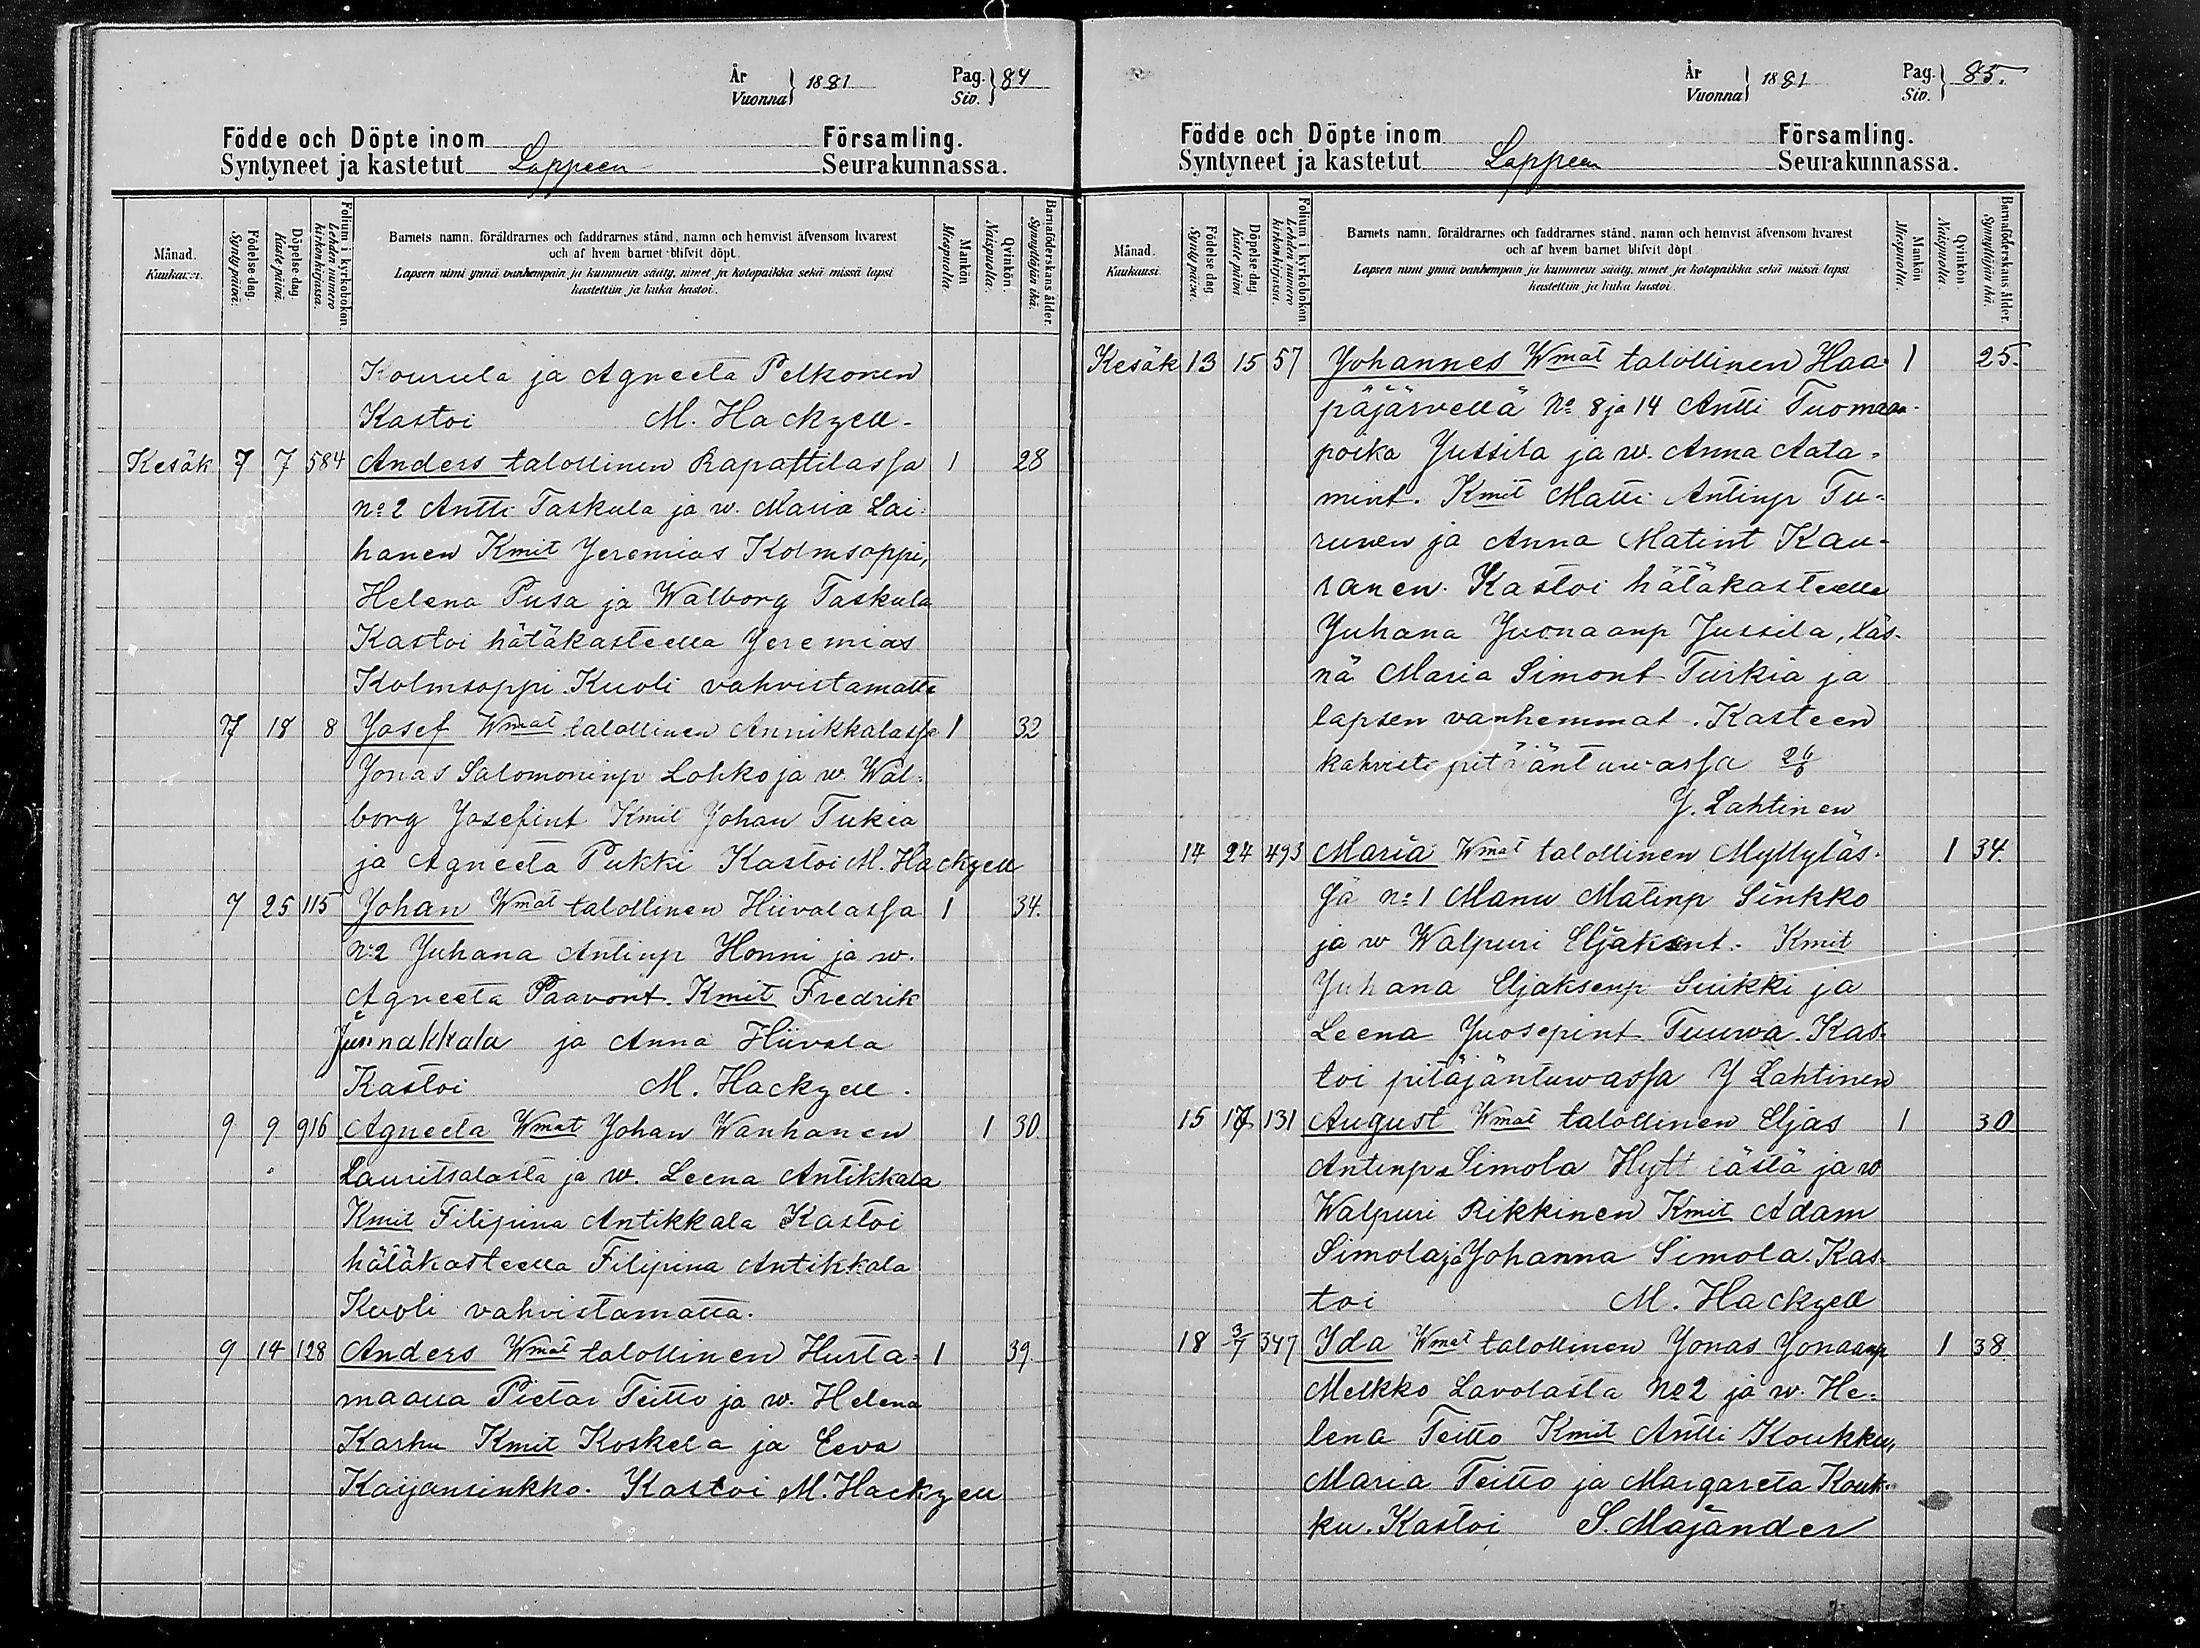 År
Vuonna } 1881
Pag.
Siv. } 84
Födde och Döpte inom Församling.
Syntyneet ja kastetut Lappeen Seurakunnassa.
Månad.
Kuukausi.
Födelse-dag.
Synty päivä.
Döpelse-dag.
Kaste päivä.
Folium i kyrkoboken.
Lehden numero
kirkonkirjassa.
Barnets namn, föräldrarnes och faddrarnes stånd, namn och hemvist äfvensom hvarest
och af hvem barnet blifvit döpt.
Lapsen nimi ynnä vanhempain ja kummein sääty, nimet ja kotopaikka sekä missä lapsi
kastettiin ja kuka kastoi.
Mankön
Miespuolia.
Qvinkön.
Naispuolia.
Barnaföderskans ålder.
Synnyttäjän ikä.
Kourula ja Agneeta Pelkonen
Kastoi M. Hackzell.
Kesäk 7 7 584 Anders talollinen Rapattilassa 1 28
No 2 Antti Taskula ja w. Maria Lai-
hanen Kmit Jeremias Kolmsoppi,
Helena Pusa ja Walborg Taskula
Kastoi hätäkasteella Jeremias
Kolmsoppi. Kuoli vahvistamatta
7 18 8 Josef Wmat talollinen Annikkalassa 1 32
Jonas Salomoninp Lohko ja w. Wal-
borg Josefint Kmit Johan Tukia
ja Agneeta Pukki Kastoi M. Hackzell
7 25 115 Johan Wmat talollinen Hiivalassa 1 34.
No 2 Juhana Antinp Honni ja w.
Agneeta Paavont. Kmit Fredrik
Junnakkala ja Anna Hiivala
Kastoi M. Hackzell.
9 9 916 Agneeta Wmat Johan Wanhanen 1 30.
Lauritsalasta ja w. Leena Antikkala
Kmit Filipina Antikkala Kastoi
hätäkasteella Filipina Antikkala
Kuoli vahvistamatta.
9 14 128 Anders Wmat talollinen Hurta- 1 39
maalla Pietar Teitto ja w. Helena
Karhu Kmit Koskela ja Eeva
Karjansinkko. Kastoi M. Hackzell
År
Vuonna } 1881
Pag.
Siv. } 85.
Födde och Döpte inom Församling.
Syntyneet ja kastetut Lappeen Seurakunnassa.
Månad.
Kuukausi.
Födelse dag.
Synty päivä.
Döpelse dag.
Kaste päivä
Folium i kyrkoboken.
Lehden numero
kirkonkirjassa.
Barnets namn, föräldrarnes och faddrarnes stånd, namn och hemvist äfvensom hvarest
och af hvem barnet blifvit döpt.
Lapsen nimi ynnä vanhempain ja kummein sääty, nimet ja kotopaikka sekä missä lapsi
kastettiin ja kuka kastoi.
Mankön
Miespuolia.
Qvinkön.
Naispuolia.
Barnaföderskans ålder.
Synnyttäjän ikä.
Kesäk 13 15 57 Johannes Wmat talollinen Haa- 1 25.
päjärvellä No 8 ja 14 Antti Tuomaan-
poika Jussila ja w. Anna Aata-
mint. Kmit Matti Antinp Tu-
runen ja Anna Matint Kau-
ranen. Kastoi hätäkasteella
Juhana Juonaanp Jussila, läs-
nä Maria Simont Turkia ja
lapsen vanhemmat. Kasteen
kahvisti pitäjäntuwassa 26/6
J. Lahtinen
14 24 493 Maria Wmat talollinen Myllyläs- 1 34.
sä No 1 Manu Matinp Sinkko
ja w Walpuri Eljaksent. Kmit
Juhana Eljaksenp Suikki ja
Leena Juosepint Tuuwa. Kas-
toi pitäjäntuwassa J Lahtinen
15 17 131 August Wmat talollinen Eljas 1 30
Antinp Simola Hyttiästä ja w
Walpuri Rikkinen Kmit Adam
Simola ja Johanna Simola. Kas-
toi M. Hackzell
18 3/7 347 Ida Wmat talollinen Jonas Jonaanp 1 38.
Melkko Lavolasta No 2 ja w. He-
lena Teitto Kmit Antti Koukku,
Maria Teitto ja Margareta Kouk-
ku. Kastoi S. Majander